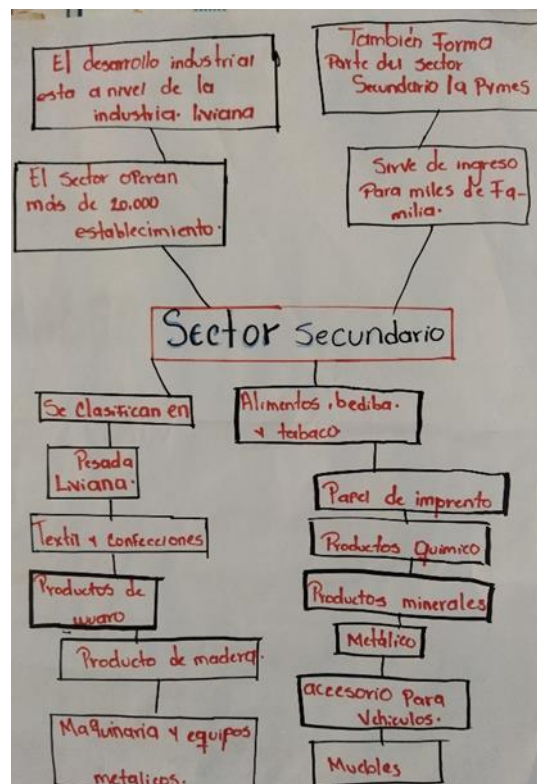 El desarrollo industrial
esta a nivel de la
industria. liviana
También Forma
Parte del sector
Secundario la Pymes
El Sector operan
más de 20,000
establecimiento.
Sirve de ingreso
Para miles de Fa-
milia.
Sector Secundario
Se Clasifican en
Pesada
Liviana.
Textil y Confecciones
Productos de
Producto de madera.
Maquinaria y equipos
metalicos.
Alimentos, bediba.
y tabaco
Papel de imprento
Productos Quimico
Productos minerales
Metálico
accesorio Para
Vehiculos.
Muebles